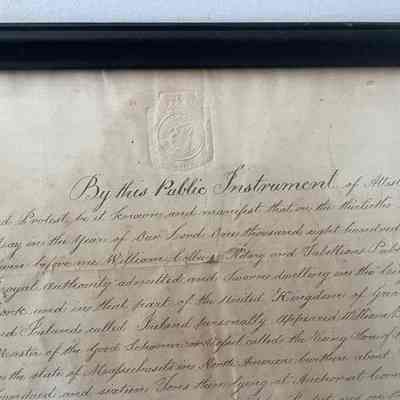 By this Public Instrument of Attest
d Protest, be it known and manifest that on the thirtieth
day in the year of Our Lord One thousand eight hundred
before me William Notary and Tabellion Publ
royal Authority admitted and Sworne dwelling in the
ork and in that part of the United Kingdom of Grea
nd Irelande called Ireland personally Appeared William
Master of the Good Schooner or Vessel called the Young
the state of Massachusets in North America burthen about
hundred and sixteen Tones then lying at Anchor at